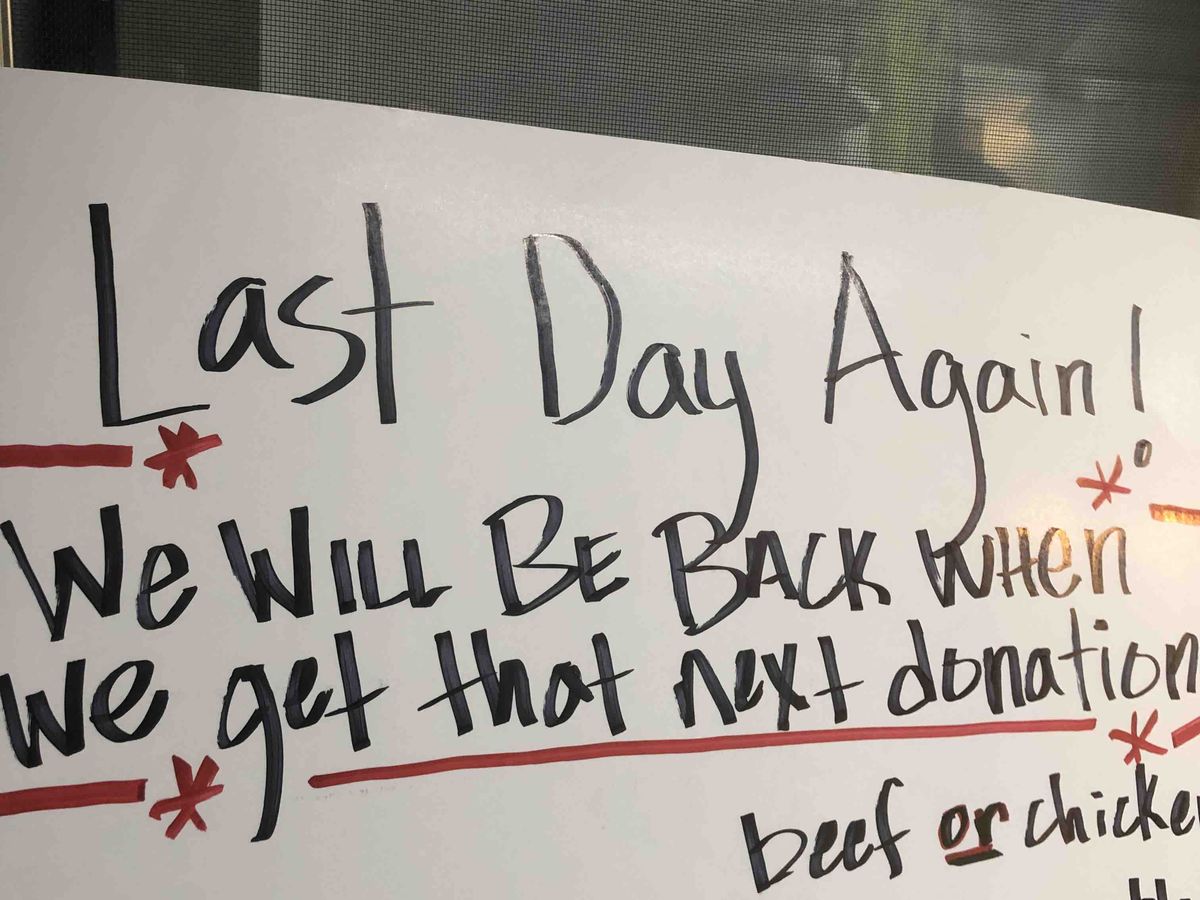 Last Day Again!
We WILL BE BACK WHen
we get that next donation
beef or chicke